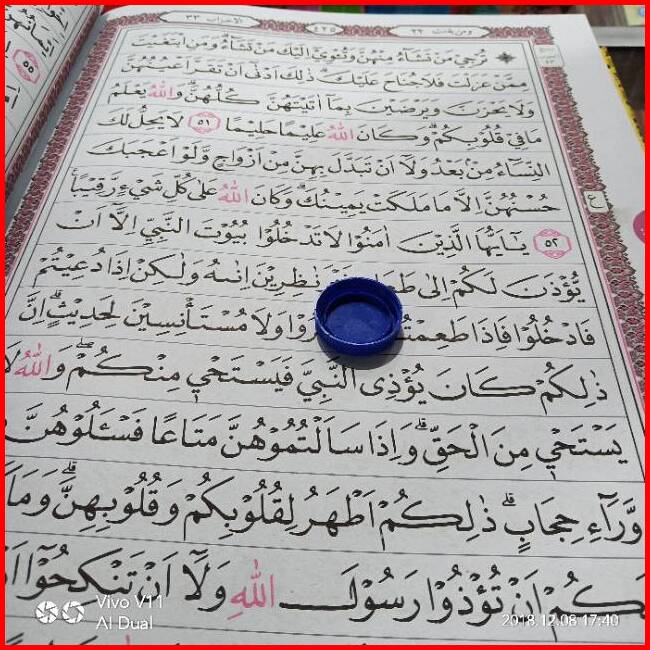 الاحزاب ٣٣
٤٢٥
ومن يقنت ٢٢
تُرْجِيْ مَنْ تَشَآءُ مِنْهُنَّ وَتُـْٔوِيْٓ اِلَيْكَ مَنْ تَشَآءُۗ وَمَنِ ابْتَغَيْتَ
مِمَّنْ عَزَلْتَ فَلَا جُنَاحَ عَلَيْكَۗ ذٰلِكَ اَدْنٰٓى اَنْ تَقَرَّ اَعْيُنُهُنَّ
وَلَا يَحْزَنَّ وَيَرْضَيْنَ بِمَآ اٰتَيْتَهُنَّ كُلُّهُنَّۗ وَاللّٰهُ يَعْلَمُ
مَا فِيْ قُلُوْبِكُمْۗ وَكَانَ اللّٰهُ عَلِيْمًا حَلِيْمًا ٥١ لَا يَحِلُّ لَكَ
النِّسَاۤءُ مِنْۢ بَعْدُ وَلَآ اَنْ تَبَدَّلَ بِهِنَّ مِنْ اَزْوَاجٍ وَّلَوْ اَعْجَبَكَ
حُسْنُهُنَّ اِلَّا مَا مَلَكَتْ يَمِيْنُكَۗ وَكَانَ اللّٰهُ عَلٰى كُلِّ شَيْءٍ رَّقِيْبًا
٥٢ يٰٓاَيُّهَا الَّذِيْنَ اٰمَنُوْا لَا تَدْخُلُوْا بُيُوْتَ النَّبِيِّ اِلَّآ اَنْ
يُّؤْذَنَ لَكُمْ اِلٰى نٰظِرِيْنَ اِنٰىهُ وَلٰكِنْ اِذَا دُعِيْتُمْ
فَادْخُلُوْا فَاِذَا وَلَا مُسْتَأْنِسِيْنَ لِحَدِيْثٍۗ اِنَّ
ذٰلِكُمْ كَانَ يُؤْذِى النَّبِيَّ فَيَسْتَحْيٖ مِنْكُمْۖ وَاللّٰهُ لَا
يَسْتَحْيٖ مِنَ الْحَقِّۗ وَاِذَا سَاَلْتُمُوْهُنَّ مَتَاعًا فَسْـَٔلُوْهُنَّ
وَّرَاۤءِ حِجَابٍۗ ذٰلِكُمْ اَطْهَرُ لِقُلُوْبِكُمْ وَقُلُوْبِهِنَّۗ وَمَا
اَنْ تُؤْذُوْا رَسُوْلَ اللّٰهِ وَلَآ اَنْ تَنْكِحُوْٓا
Vivo V11
AI Dual
2018.12.08 17:40